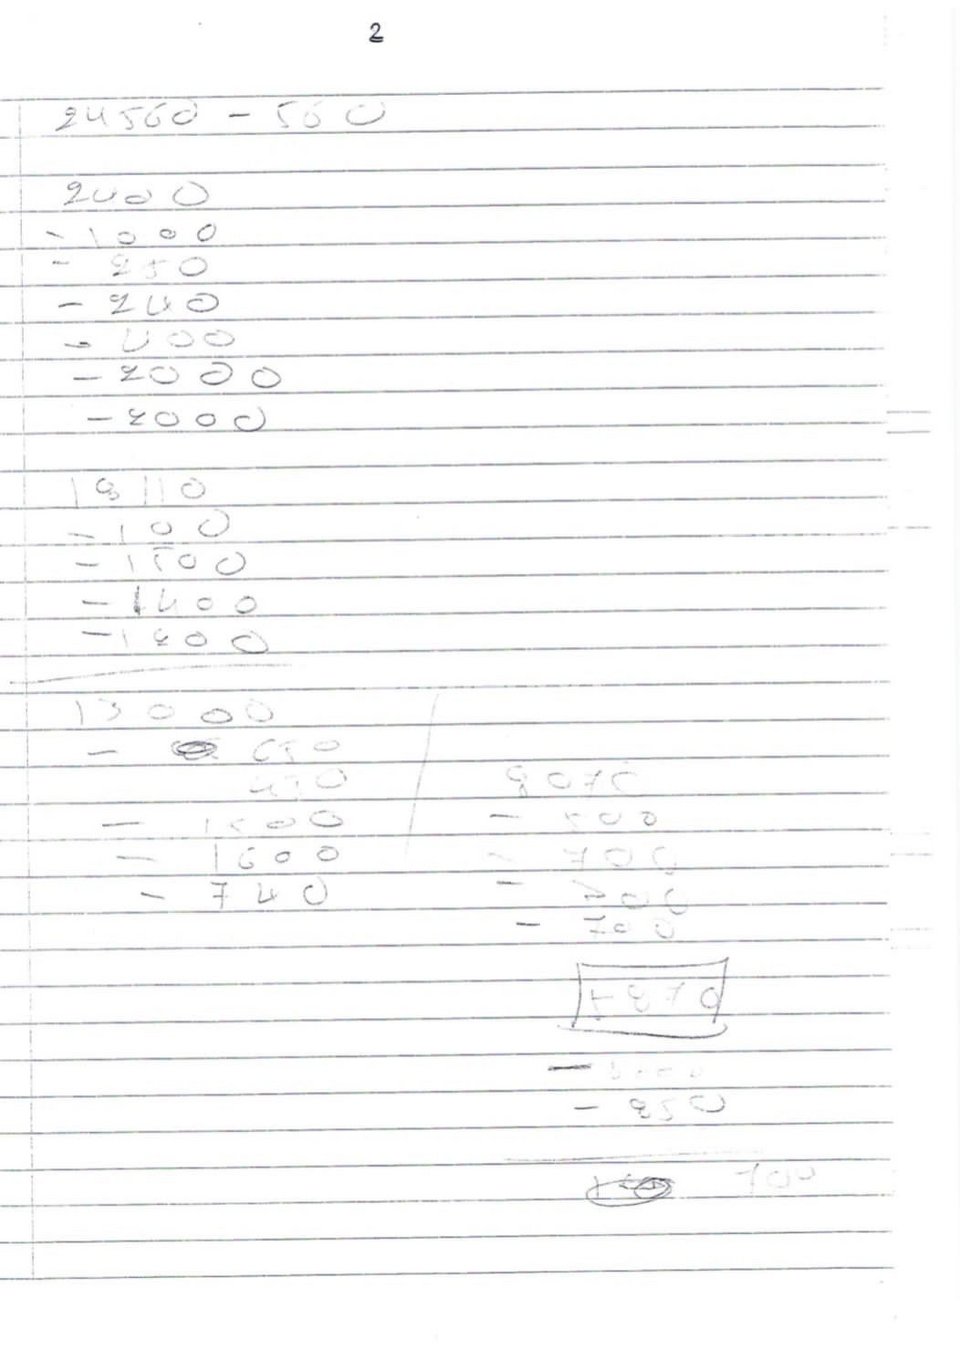 2
24560 - 560
2400 0
- 1000
- 250
- 240
- 400
- 2000
- 2000
18110
- 100
- 1500
- 1400
- 1200
13000
- 650
450
- 1500
- 1600
- 740
8075
- 500
- 700
- 700
- 700
5870
- 850
700